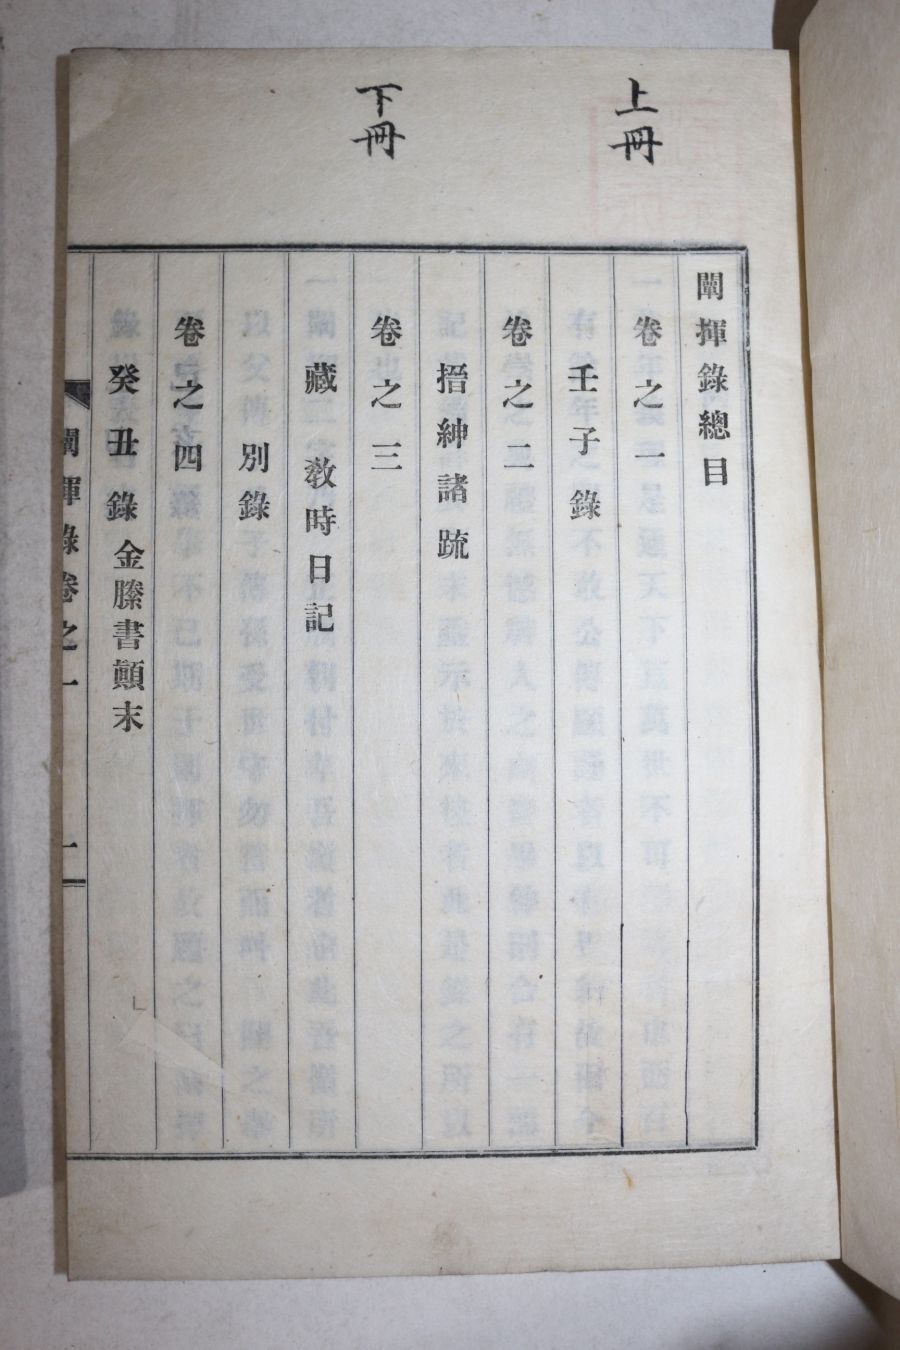 上冊
下冊
闡揮錄總目
卷之一
壬子錄
卷之二
搢紳諸䟽
卷之三
藏敎時日記
別錄
卷之四
癸丑錄 金縢書顚末
闡揮錄卷之一